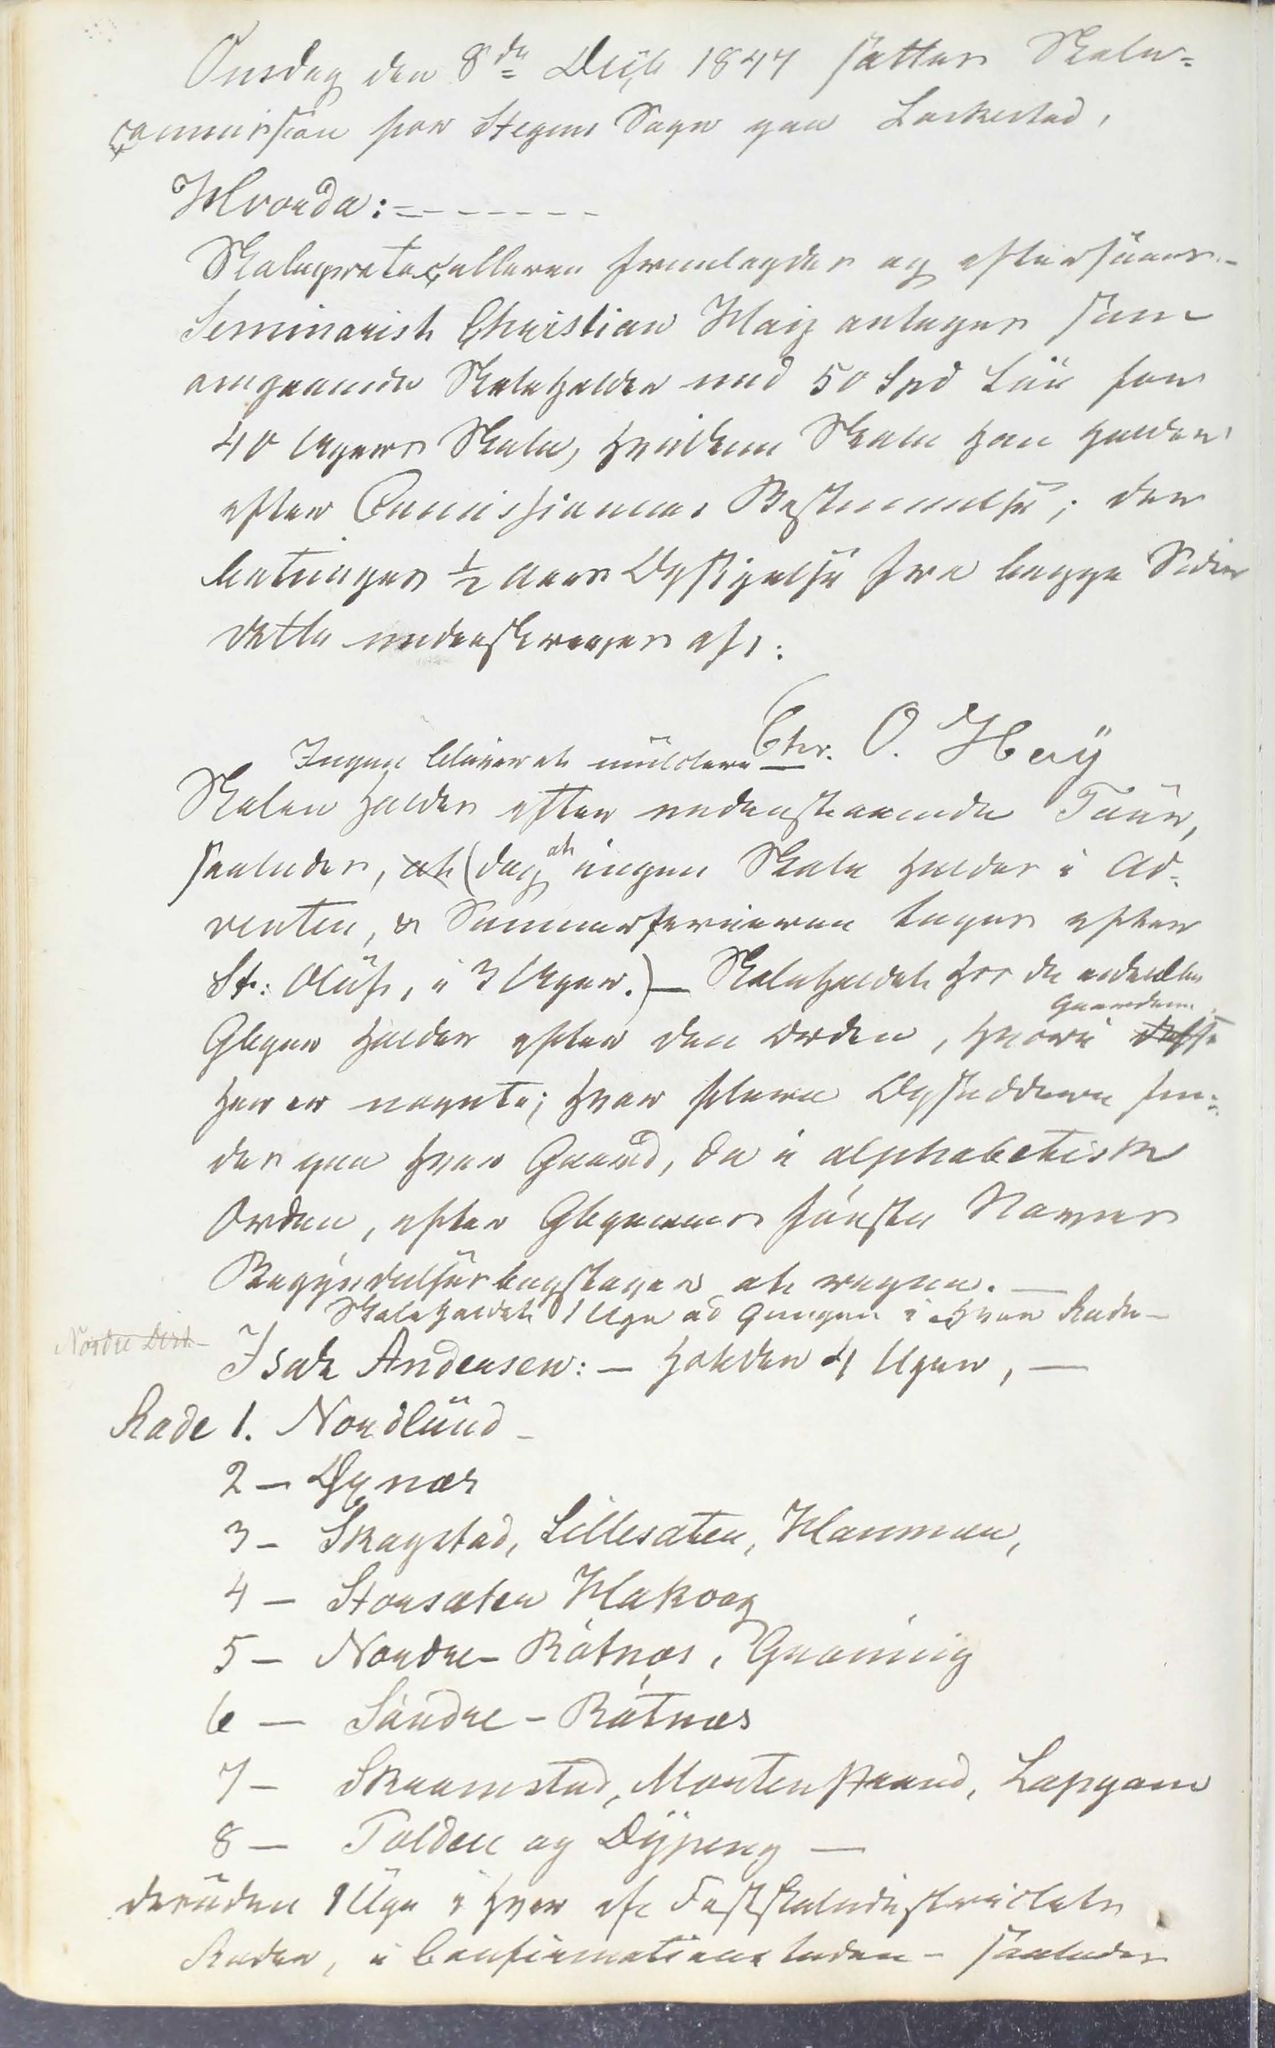 Onsdag den 8de Decb 1847 sattes Skole-
commission for Stegens Sogn paa Laskestad,
Hvorda:-------
Skoleprotocolleren fremlagdes og eftersaaes.-
Seminarist Christian Haij antages som
omgaaende Skoleholder med 50 Spd Løn for
40 Ugers Skole, hvilken Skole han holder
efter Commissionens Bestemmelse; der
betinges 1/2 Aars Opsigelse fra begge Sider
dette underskrives af:
Chr. O. Haij
Ingen blev at meddele
Skolen holdes efter nedenstaaende Tour,
saaledes, (dog at ingen Skole holdes i Ad-
venten, & Sommerferierne tages efter
St: Olufs, i 3 Uger.) - Skoleholdet hos de enkelte
Gaardene
Opsiddere holdes efter den Orden, hvori disse
her er nævnte; hvor flere Opsiddere fin-
des paa hver Gaard, da i alphabetisk
Orden, efter første Navnes
Begyndelsesbogstaver at regne. -
Skoleholdet 1 Uge ad Gangen i hver Rode -
Nordre Dist-
Isak Andersen: - holder 41 Uger, -
Rode 1. Nordlund -
2 - Øxnæs
3 - Skagstad, Lillesæten, Hammen,
4 - Storsæten Hakvaag
5 - Nordre-Bøtnæs, Grøning
6 - Søndre-Bøtnæs
7 - Skaanstad, Mortenstrand, Lapgam
8 - Tolden og Dypeng -
desuden 1 Uge i hver af Fastskoledistrictets
Roder, i Confirmationstiden - saaledes